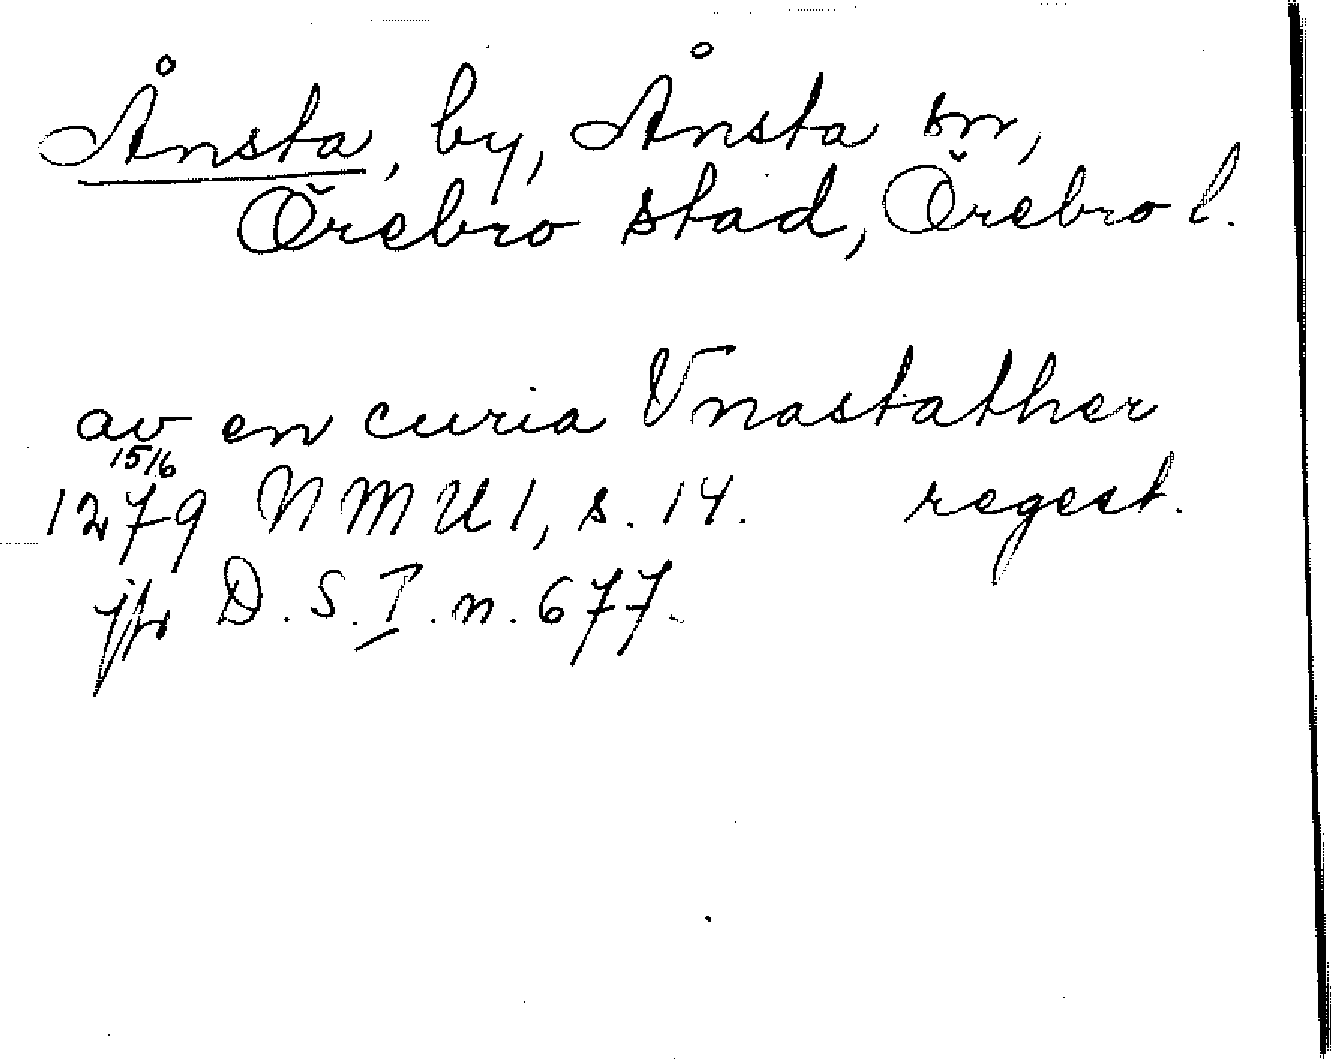 Ånsta, by, Ånsta sn,
Örebro stad, Örebro l.
av en curia Vnastather
15/6
1279 NMU 1, s. 14. regest.
jfr D. S. I. n. 677.